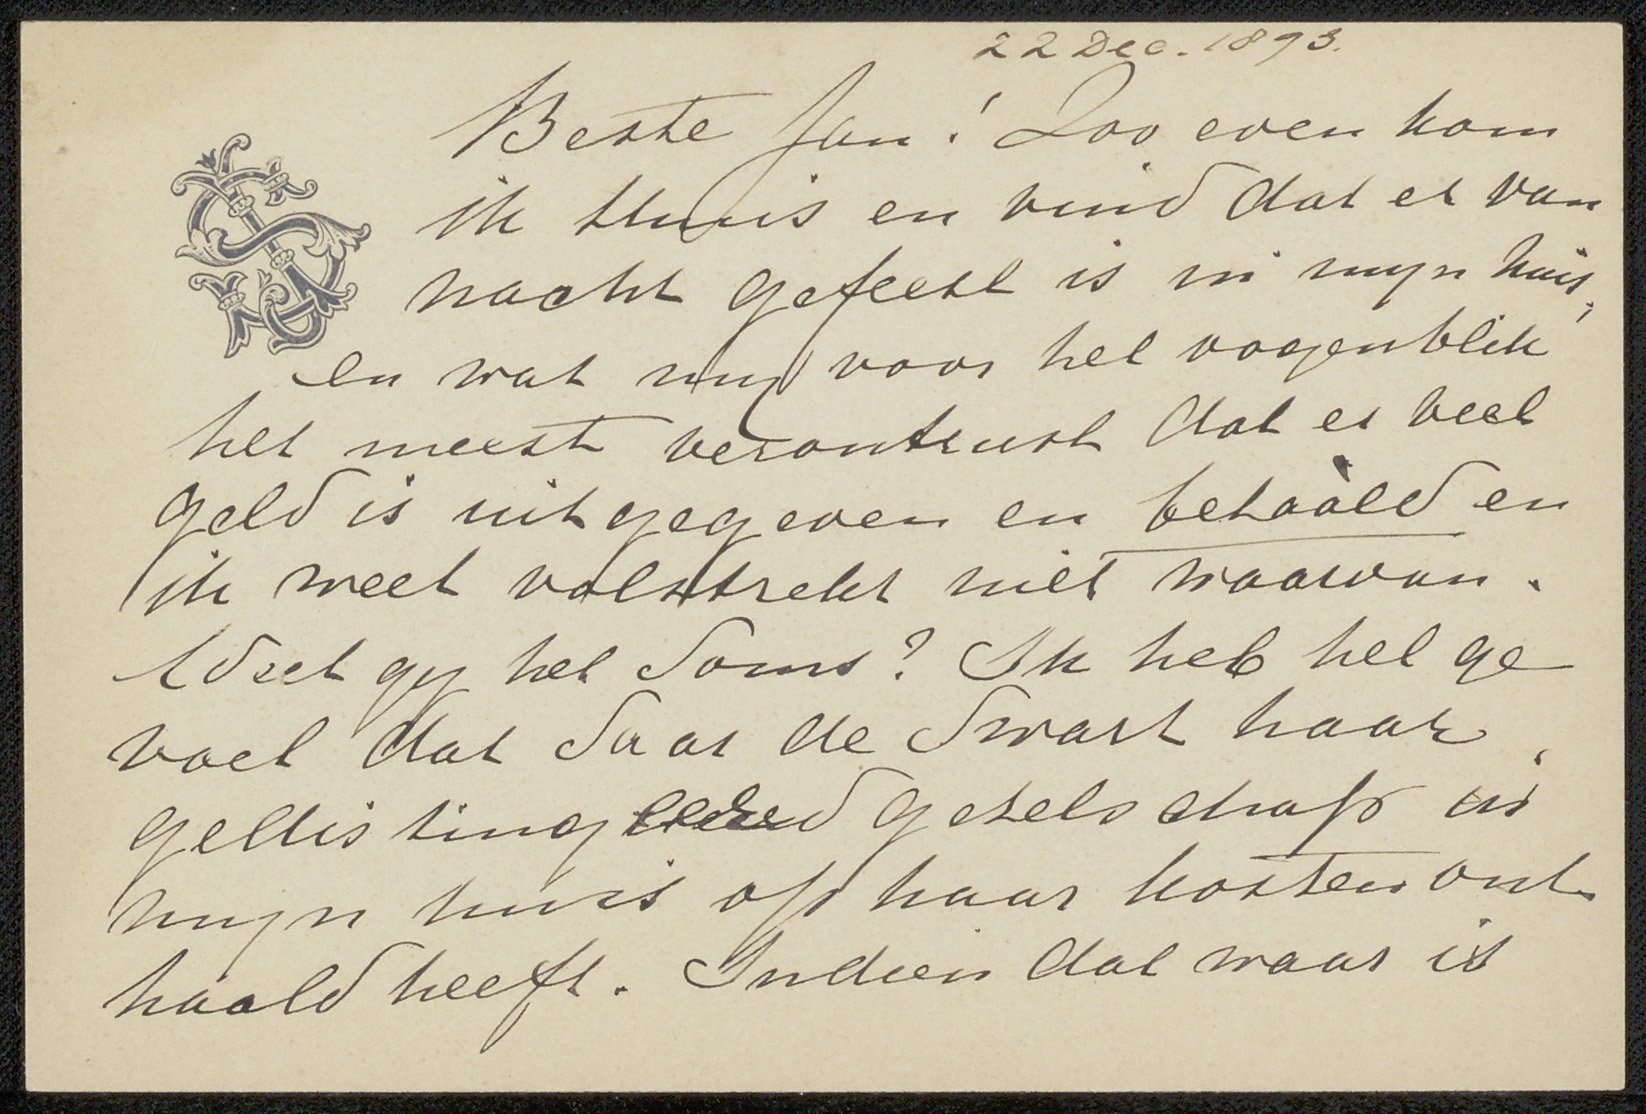 22 Dec. 1893.
Beste Jan! Zoo even kom
ik thuis en vind dat er van
nacht gefeest is in mijn huis,
en wat mij voor het oogenblik
het meest verontrust dat er veel
geld is uitgegeven en betaald en
ik weet volstrekt niet waarvan.
Weet gij het soms? Ik heb het ge
voel dat Saar de Swart haar
gedistingeerd gezelschap in
mijn huis op haar kosten ont
haald heeft. Indien dat waar is